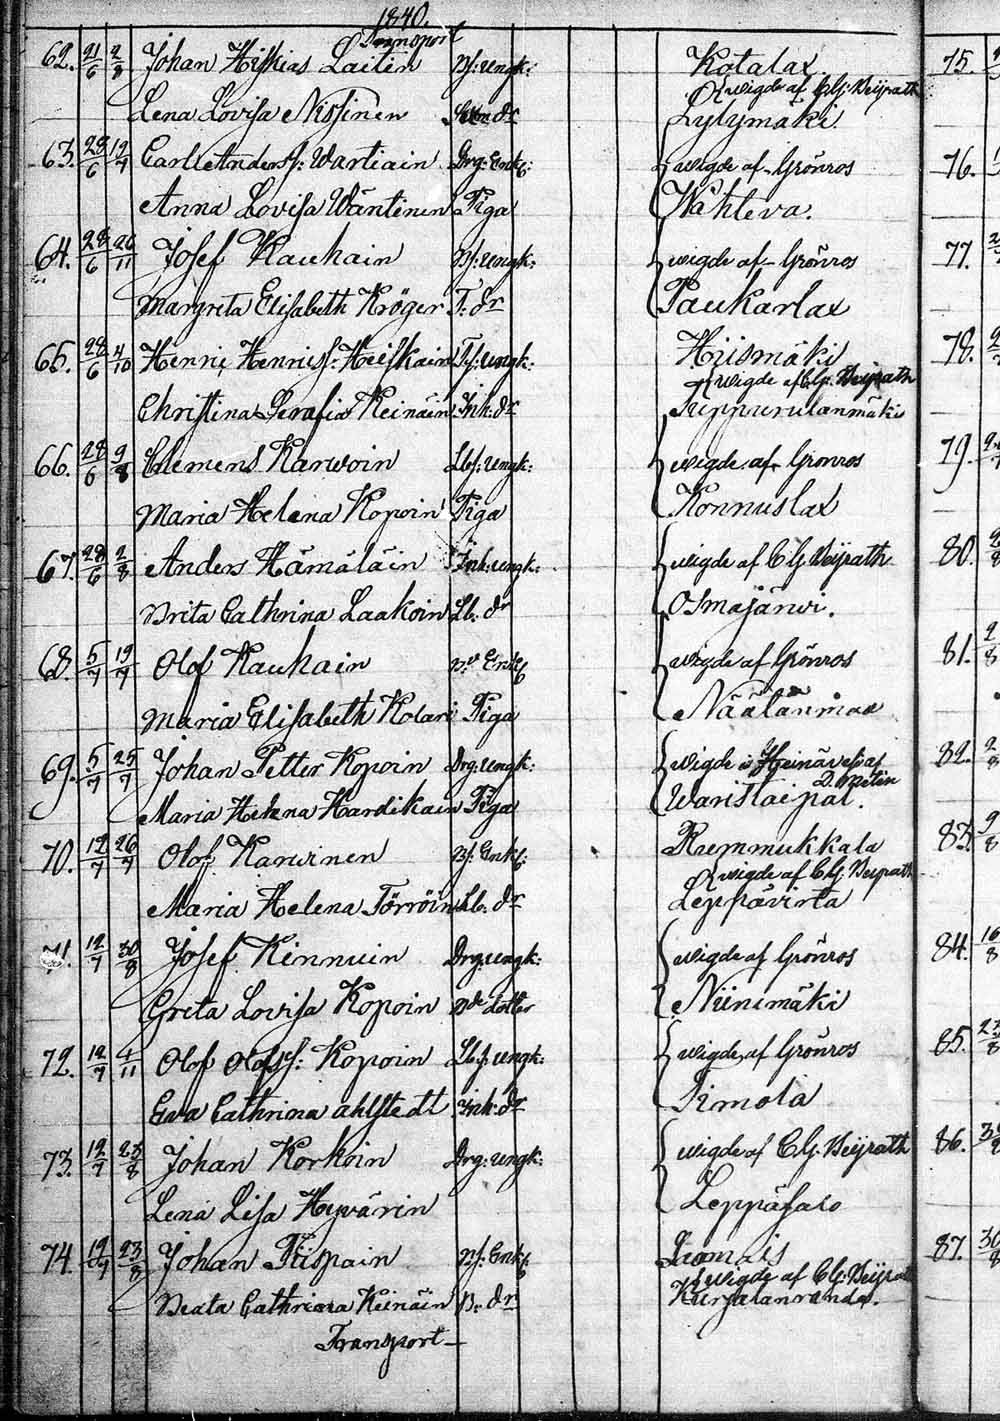 1840.
Transport
62. 21/6 2/8 Johan Hiskias Laitin Bs: ungk: Kotalax.
wigde af C.G. Weijrath
Lena Lovisa Nissinen dr Lylymäki
63. 28/6 12/7 Carl Anders s: Wartiain Drg: Enkl: wigde af Grönros
Anna Lovisa Wäntinen Piga Wahteva.
64. 28/6 26/11 Josef Kauhain Bs: ungk: wigde af Grönros
Margreta Elisabeth Kröger T: dr Paukarlax
65. 28/6 4/10 Henric Henrics s: Heiskain Ts: ungk: Hiismäki
wigde af C.G. Weijrath
Christina Serafia Keinäin Inh: dr Juppurulanmäki
66. 28/6 9/8 Clemens Karwoin Lbs: ungk: wigde af Grönros
Maria Helena Kopoin Piga Konnuslax
67. 28/6 2/8 Anders Hämäläin Inh: ungk: wigde af C G Weijrath
Brita Cathrina Laakoin Lb: dr Osmajärwi.
68. 5/7 19/7 Olof Kauhain Enkl wigde af Grönros
Maria Elisabeth Kolari Piga Näälänmaa
69. 5/7 25/7 Johan Petter Kopoin Drg: ungk: wigde i Heinävesi af
D. Metin
Maria Helena Hardikain Piga Waristaipal.
70. 12/7 26/7 Olof Karwinen Bs: Enkl: Remmukkala
wigde af C.G. Weijrath
Maria Helena Törröin Lb: dr Leppävirta
71. 12/7 30/8 Josef Kinnuin Drg: ungk: wigde af Grönros
Greta Lovisa Kopoin Bde dotter Niinimäki
72. 12/7 4/11 Olof Olofs s: Kopoin Lbs: ungk: wigde af Grönros
Eva Cathrina Ahlstedt Inh: dr Timola
73. 12/7 23/8 Johan Korkoin Drg: ungk: wigde af C.G. Weijrath
Lena Lisa Hyvärin Leppäsalo
74. 19/7 23/8 Johan Piispain Bs: Enkl: Luomais
wigde af C.G: Weijrath
Beata Cathrina Keinäin B: dr Kurjalanranda.
Transport
75.
76.
77.
78.
79.
80.
81. 2/8
82. 2/8
83. 9/8
84. 16/8
85. 23/8
86. 30
87. 30/8